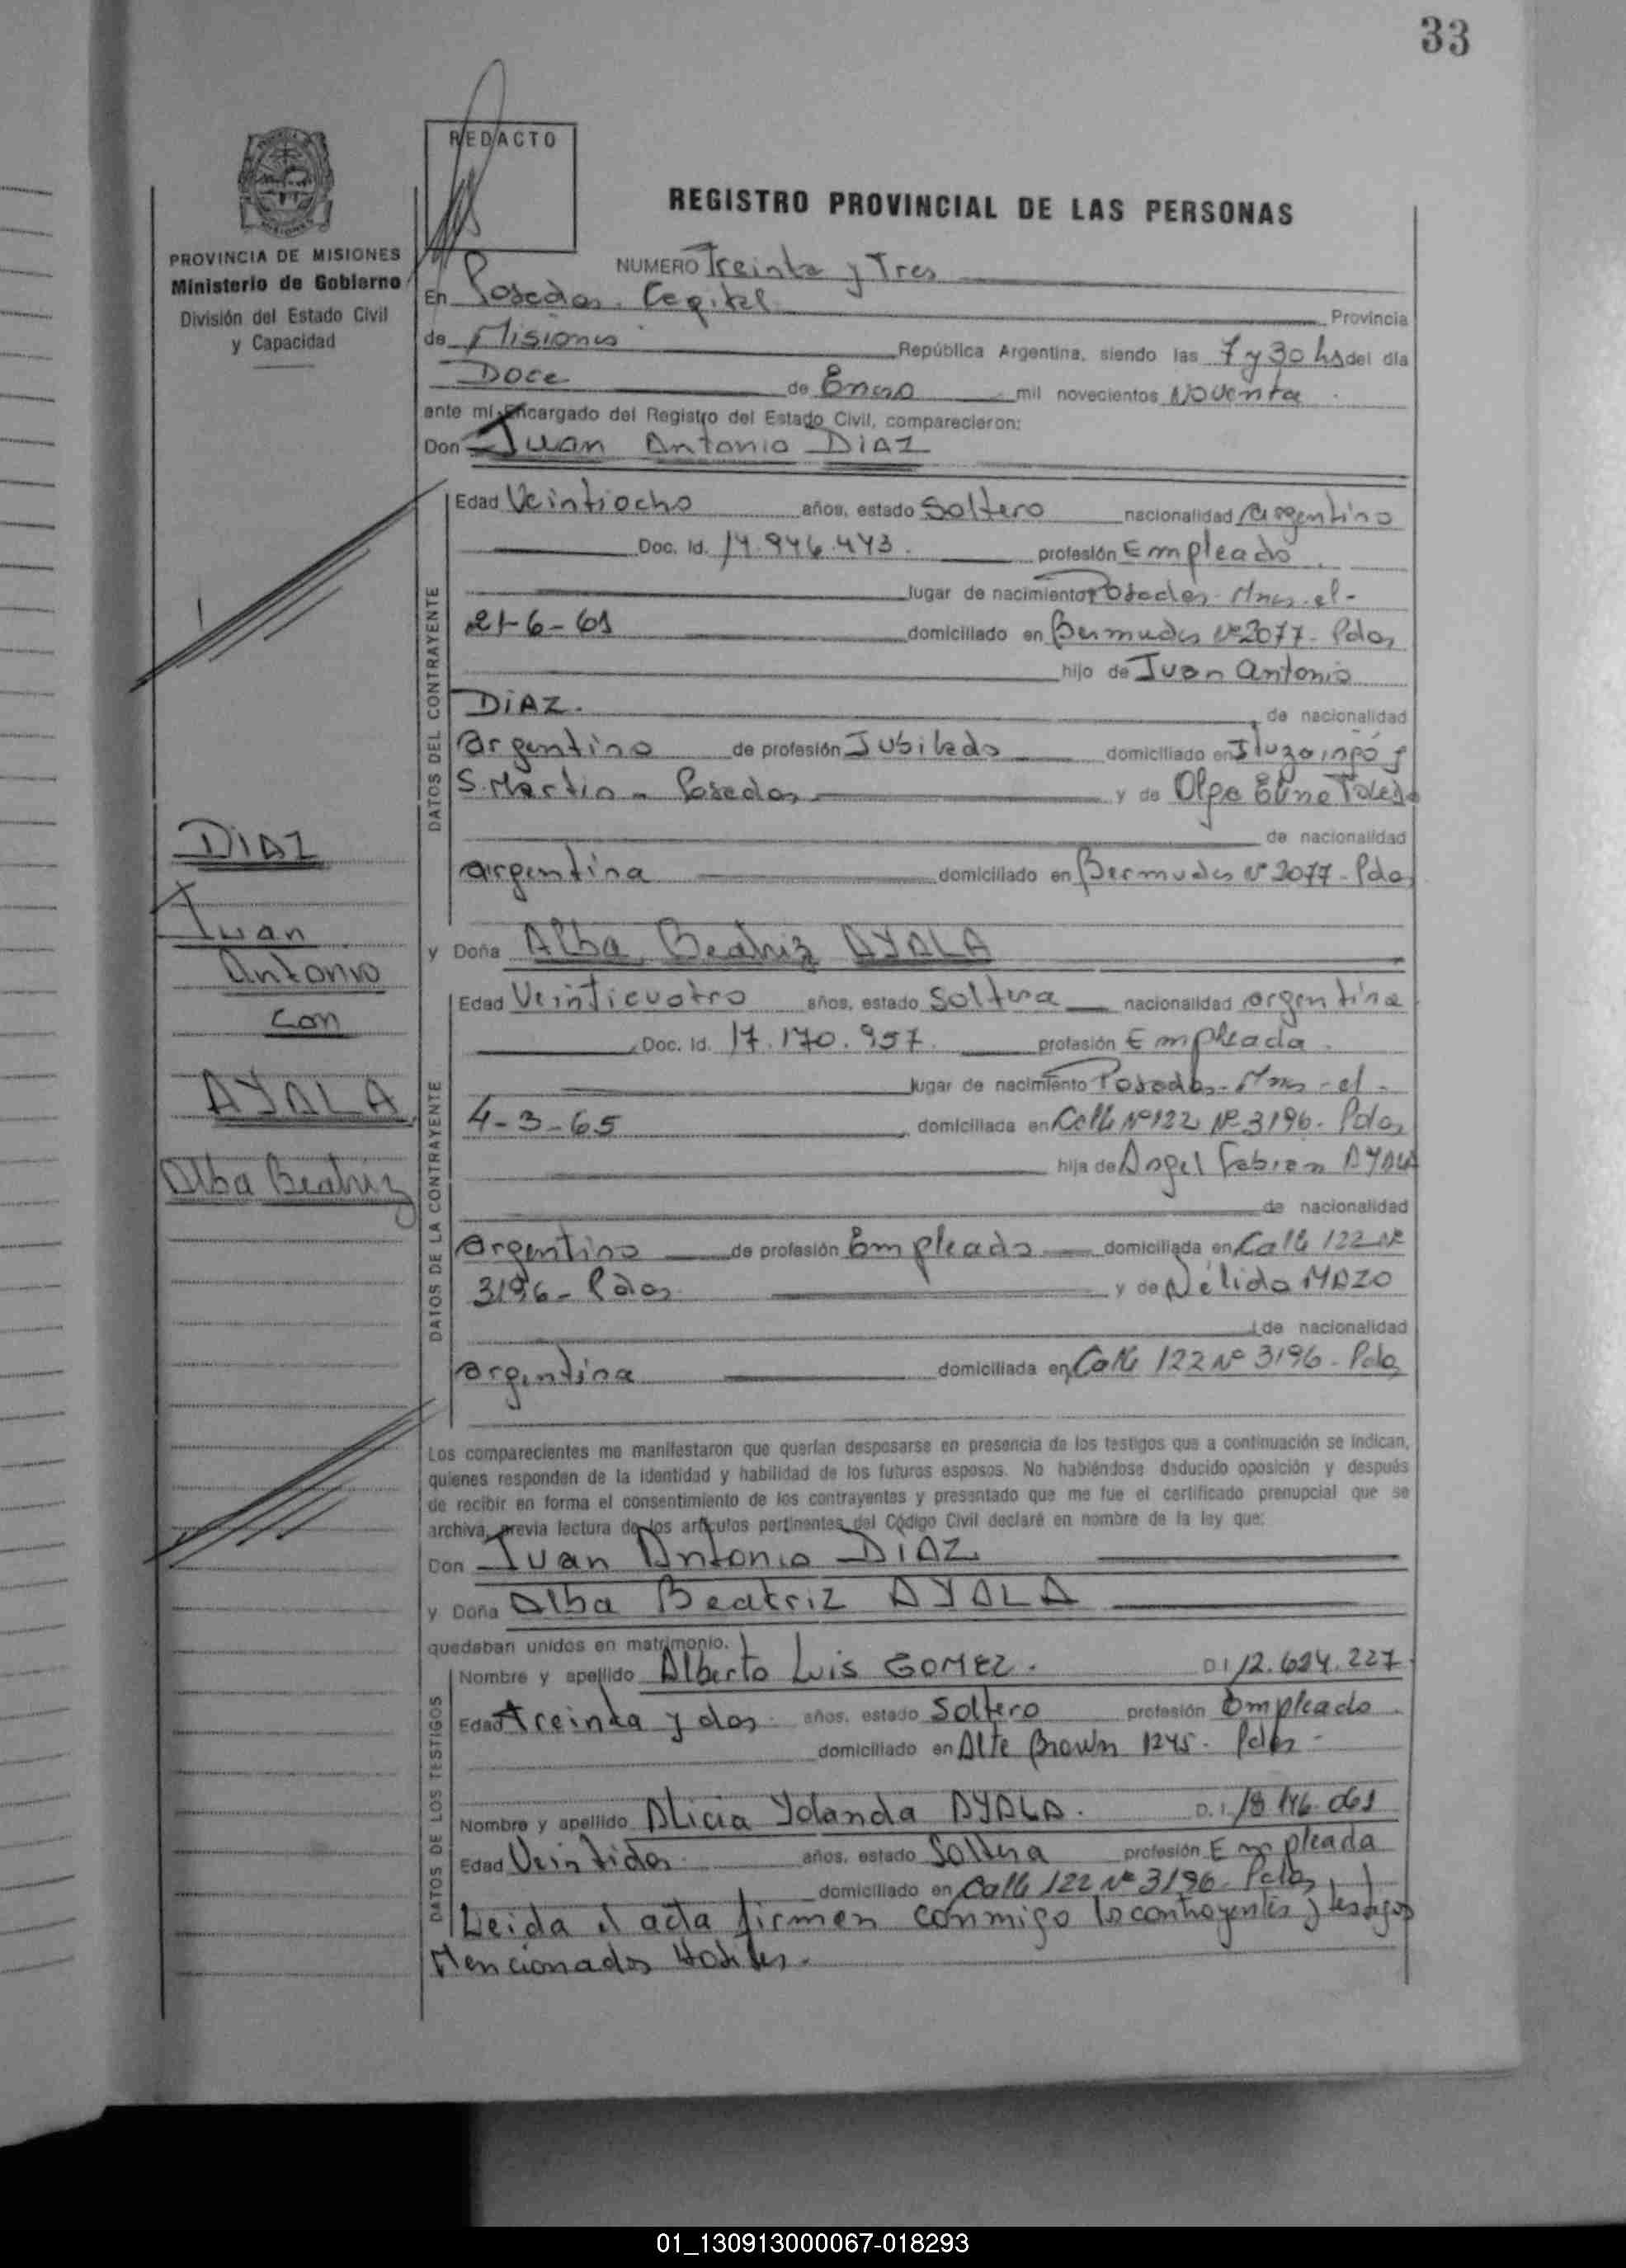 33
REDACTO
REGISTRO PROVINCIAL DE LAS PERSONAS
PROVINCIA DE MISIONES
Ministerio de Gobierno
División del Estado Civil
y Capacidad
NUMERO Treinta y Tres
En Posadas. Capital Provincia
de Misiones República Argentina, siendo las 7 y 30 hs del día
Doce de Enero mil novecientos Noventa
ante mí Encargado del Registro del Estado Civil, comparecieron:
Don Juan Antonio DIAZ
DATOS DEL CONTRAYENTE
Edad Veintiocho años, estado Soltero nacionalidad argentino
Doc. Id. 14.946.443. profesión Empleado
lugar de nacimiento Posadas - Mnes - el -
21-6-61 domiciliado en Bermudes Nº 2077 - Pdas
hijo de Juan Antonio
DIAZ. de nacionalidad
argentino de profesión Jubilado domiciliado en Ituzaingó y
S. Martin - Posadas y de Olga Elina Toledo
de nacionalidad
argentina domiciliado en Bermudes Nº 2077 - Pdas
DIAZ
Juan
Antonio
con
AYALA
Alba Beatriz
y Doña Alba Beatriz AYALA
DATOS DE LA CONTRAYENTE
Edad Veinticuatro años, estado Soltera nacionalidad argentina
Doc. Id. 17.170.957. profesión Empleada
lugar de nacimiento Posadas - Mnes - el -
4-3-65 domiciliada en Calle Nº 122 Nº 3196 - Pdas
hija de Angel Fabian AYALA
de nacionalidad
Argentino de profesión Empleado domiciliada en Calle 122 Nº
3196 - Pdas y de Nélida MAZO
de nacionalidad
argentina domiciliada en Calle 122 Nº 3196 - Pdas
Los comparecientes me manifestaron que querían desposarse en presencia de los testigos que a continuación se indican,
quienes responden de la identidad y habilidad de los futuros esposos. No habiéndose deducido oposición y después
de recibir en forma el consentimiento de los contrayentes y presentado que me fue el certificado prenupcial que se
archiva, previa lectura de los artículos pertinentes del Código Civil declaré en nombre de la ley que:
Don Juan Antonio DIAZ
y Doña Alba Beatriz AYALA
quedaban unidos en matrimonio.
DATOS DE LOS TESTIGOS
Nombre y apellido Alberto Luis GOMEZ. D I 12.624.227
Edad treinta y dos años, estado Soltero profesión Empleado
domiciliado en Alte Brown 1245 - Pdas -
Nombre y apellido Alicia Yolanda AYALA. D. I. 18.146.061
Edad Veintidos años, estado Soltera profesión Empleada
domiciliado en Calle 122 Nº 3196 - Pdas
Leida el acta firman conmigo lo contrayentes y testigos
Mencionados
01_130913000067-018293